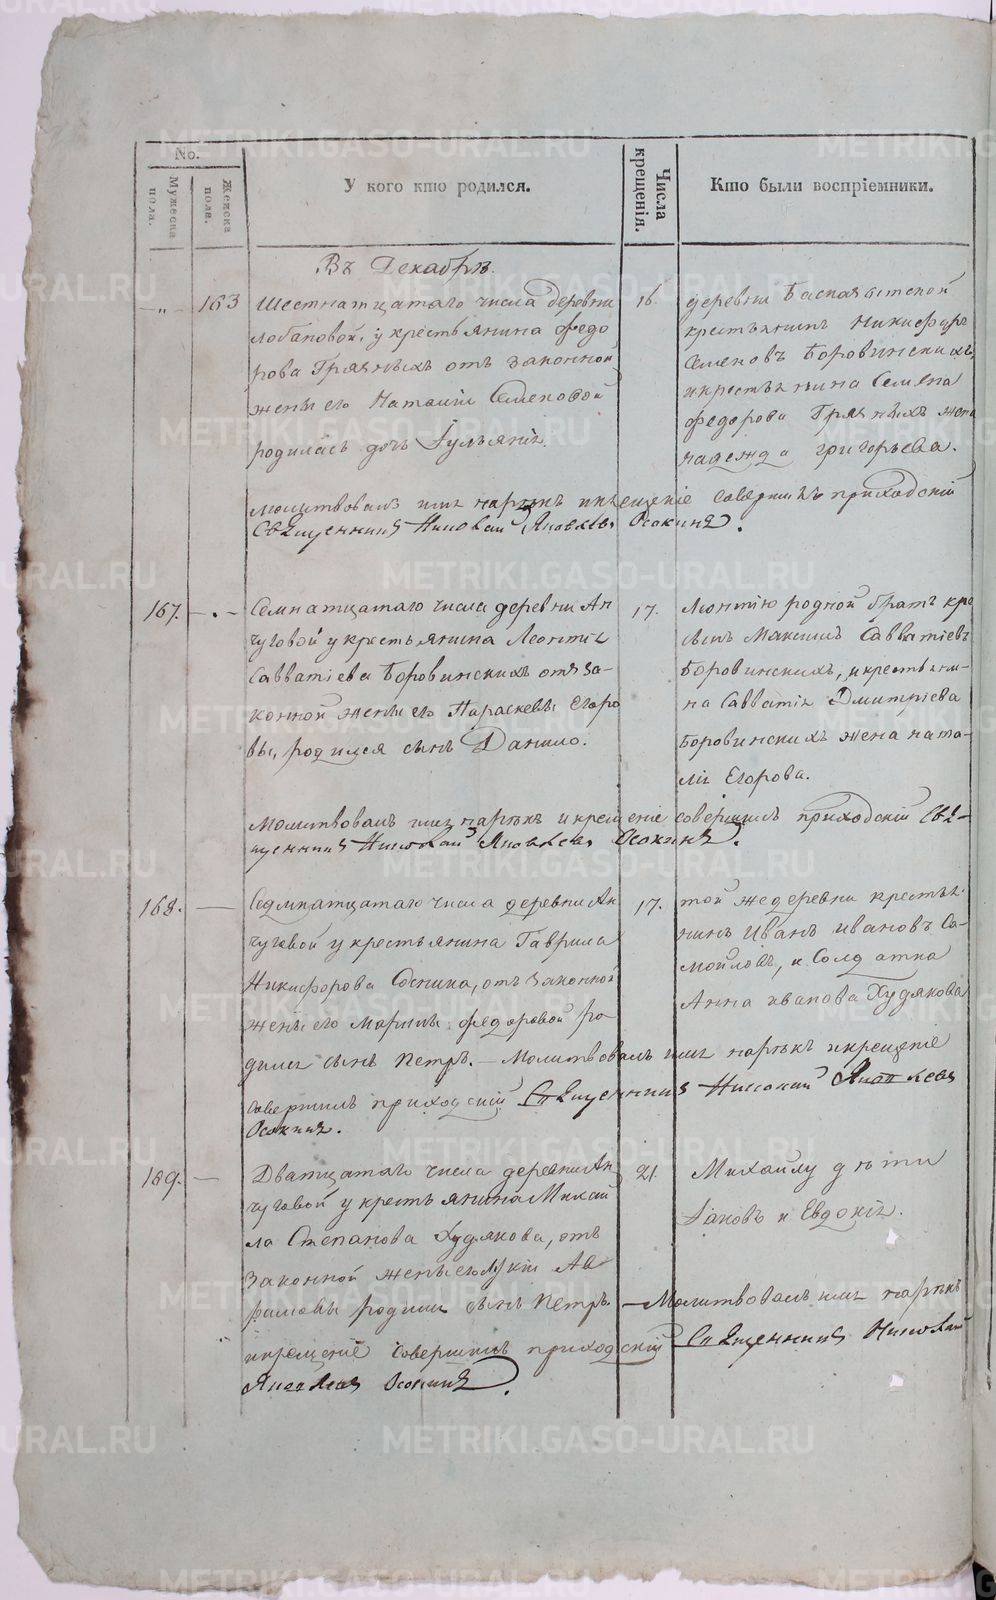 No.
Мужеска пола.
Женска пола.
У кого кто родился.
Числа крещенія.
Кто были воспріемники.
Въ Декабрѣ.
-„- 163 Шестнатцатаго числа деревни
лобановой, у крестьянина Федо
рова Грязныхъ отъ законной
жены его Наталіи Семеновой
родилась дочь Іульяніе.
16. деревни
крестьянинъ Никифоръ
Семеновъ Боровинскихъ,
и крестьянина Семена
Федорова Грязныхъ жена
надежда григорьева.
молитвовалъ имя нарѣкъ и крещеніе совершилъ приходскій
Священникъ Николай Яковлевъ Осокинъ.
167. - . - Семнатцатаго числа деревни Ан
чуговой у крестьянина Леонтія
Савватіева Боровинскихъ отъ за-
конной жены его Параскевы Егоро
вы, родился сынъ Данило.
17. Леонтію родной братъ кре
Максимъ Савватіевъ
Боровинскихъ, и крестьяни-
на Савватія Дмитріева
Боровинскихъ жена ната-
лія Егорова.
Молитвовалъ имя нарѣкъ и крещеніе совершилъ приходскій Свя-
щенникъ Николай Яковлевъ Осокинъ.
168. — Седмнатцатаго числа деревни Ан
чуговой у крестьянина Гаврила
Никифорова Соснина, отъ законной
жены его Марины федоровой ро-
дился сынъ Петръ. — Молитвовалъ имя нарѣкъ и крещеніе
совершилъ приходскій Священникъ Николай Яковлевъ
Осокинъ.
17. той же деревни крестья-
нинъ Иванъ Ивановъ Са-
мойловъ, и Солдатка
Анна иванова Худякова
169. — Дватцатаго числа деревни Ан
чуговой у крестьянина Михай
ла Степанова Худякова, отъ
законной жены его Лукіи Ав
рамовы родился сынъ Петръ. — Молитвовалъ имя нарѣкъ
и крещеніе совершилъ приходскій Священникъ Николай
Яковлевъ Осокинъ.
21. Михайлу дѣти
Іаковъ и Евдокія.
METRIKI.GASO-URAL.RU